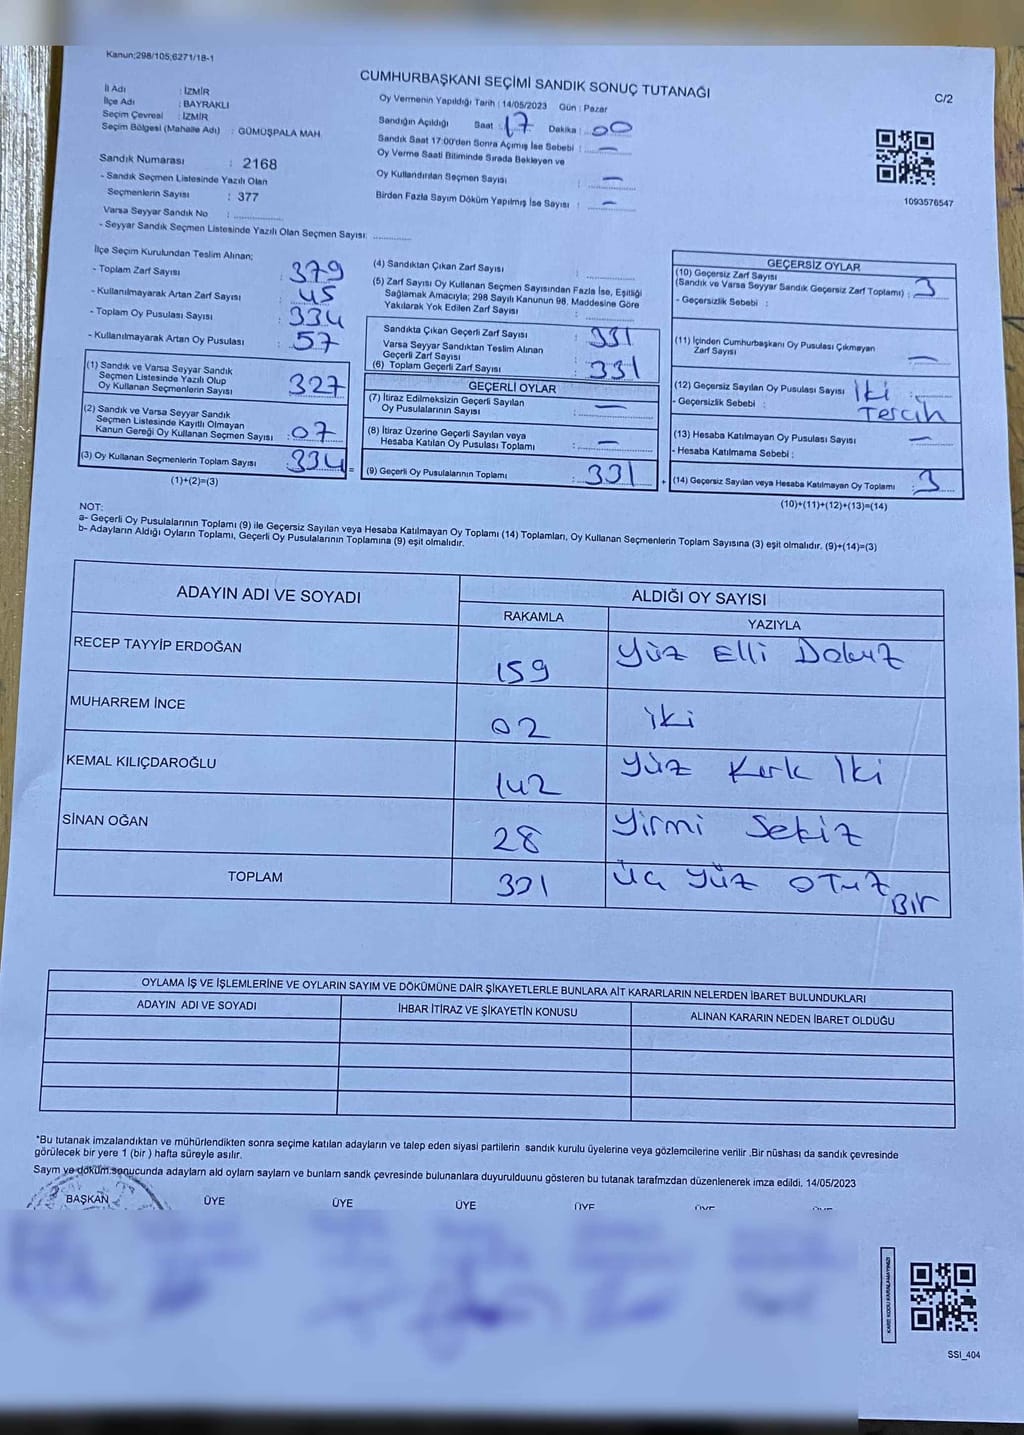 Kanun:298/105;6271/18-1
CUMHURBAŞKANI SEÇİMİ SANDIK SONUÇ TUTANAĞI
C/2
İl Adı : İZMİR
İlçe Adı : BAYRAKLI
Seçim Çevresi : İZMİR
Seçim Bölgesi (Mahalle Adı) : GÜMÜŞPALA MAH.
Sandık Numarası : 2168
- Sandık Seçmen Listesinde Yazılı Olan
Seçmenlerin Sayısı : 377
Varsa Seyyar Sandık No :
- Seyyar Sandık Seçmen Listesinde Yazılı Olan Seçmen Sayısı:
Oy Vermenin Yapıldığı Tarih : 14/05/2023 Gün : Pazar
Sandığın Açıldığı Saat : 17 Dakika : 00
Sandık Saat 17:00'den Sonra Açımış İse Sebebi : —
Oy Verme Saati Bitiminde Sırada Bekleyen ve
Oy Kullandırılan Seçmen Sayısı : —
Birden Fazla Sayım Döküm Yapılmış İse Sayısı : —
1093576547
İlçe Seçim Kurulundan Teslim Alınan;
- Toplam Zarf Sayısı : 379
- Kullanılmayarak Artan Zarf Sayısı : 45
- Toplam Oy Pusulası Sayısı : 334
- Kullanılmayarak Artan Oy Pusulası : 57
(1) Sandık ve Varsa Seyyar Sandık
Seçmen Listesinde Yazılı Olup
Oy Kullanan Seçmenlerin Sayısı : 327
(2) Sandık ve Varsa Seyyar Sandık
Seçmen Listesinde Kayıtlı Olmayan
Kanun Gereği Oy Kullanan Seçmen Sayısı : 07
(3) Oy Kullanan Seçmenlerin Toplam Sayısı : 334 =
(1)+(2)=(3)
(4) Sandıktan Çıkan Zarf Sayısı :
(5) Zarf Sayısı Oy Kullanan Seçmen Sayısından Fazla İse, Eşitliği
Sağlamak Amacıyla; 298 Sayılı Kanunun 98. Maddesine Göre
Yakılarak Yok Edilen Zarf Sayısı :
Sandıkta Çıkan Geçerli Zarf Sayısı : 331
Varsa Seyyar Sandıktan Teslim Alınan
Geçerli Zarf Sayısı :
(6) Toplam Geçerli Zarf Sayısı : 331
GEÇERLİ OYLAR
(7) İtiraz Edilmeksizin Geçerli Sayılan
Oy Pusulalarının Sayısı : —
(8) İtiraz Üzerine Geçerli Sayılan veya
Hesaba Katılan Oy Pusulası Toplamı : —
(9) Geçerli Oy Pusulalarının Toplamı : 331 +
GEÇERSİZ OYLAR
(10) Geçersiz Zarf Sayısı
(Sandık ve Varsa Seyyar Sandık Geçersiz Zarf Toplamı) : 3
- Geçersizlik Sebebi :
(11) İçinden Cumhurbaşkanı Oy Pusulası Çıkmayan
Zarf Sayısı : —
(12) Geçersiz Sayılan Oy Pusulası Sayısı : İki
- Geçersizlik Sebebi : Tercih
(13) Hesaba Katılmayan Oy Pusulası Sayısı : —
- Hesaba Katılmama Sebebi :
(14) Geçersiz Sayılan veya Hesaba Katılmayan Oy Toplamı : 3
(10)+(11)+(12)+(13)=(14)
NOT:
a- Geçerli Oy Pusulalarının Toplamı (9) ile Geçersiz Sayılan veya Hesaba Katılmayan Oy Toplamı (14) Toplamları, Oy Kullanan Seçmenlerin Toplam Sayısına (3) eşit olmalıdır. (9)+(14)=(3)
b- Adayların Aldığı Oyların Toplamı, Geçerli Oy Pusulalarının Toplamına (9) eşit olmalıdır.
ADAYIN ADI VE SOYADI ALDIĞI OY SAYISI
RAKAMLA YAZIYLA
RECEP TAYYİP ERDOĞAN 159 Yüz Elli Dokuz
MUHARREM İNCE 02 iki
KEMAL KILIÇDAROĞLU 142 Yüz Kırk İki
SİNAN OĞAN 28 Yirmi Sekiz
TOPLAM 331 Üç Yüz OTuz Bir
OYLAMA İŞ VE İŞLEMLERİNE VE OYLARIN SAYIM VE DÖKÜMÜNE DAİR ŞİKAYETLERLE BUNLARA AİT KARARLARIN NELERDEN İBARET BULUNDUKLARI
ADAYIN ADI VE SOYADI İHBAR İTİRAZ VE ŞİKAYETİN KONUSU ALINAN KARARIN NEDEN İBARET OLDUĞU
*Bu tutanak imzalandıktan ve mühürlendikten sonra seçime katılan adayların ve talep eden siyasi partilerin sandık kurulu üyelerine veya gözlemcilerine verilir .Bir nüshası da sandık çevresinde
görülecek bir yere 1 (bir ) hafta süreyle asılır.
Saym ve döküm sonucunda adaylarn ald oylarn saylarn ve bunlarn sandk çevresinde bulunanlara duyurulduunu gösteren bu tutanak tarafmzdan düzenlenerek imza edildi. 14/05/2023
BAŞKAN ÜYE ÜYE ÜYE ÜYE ÜYE
KARE KODU KARALAMAYINIZ!
SSI_404